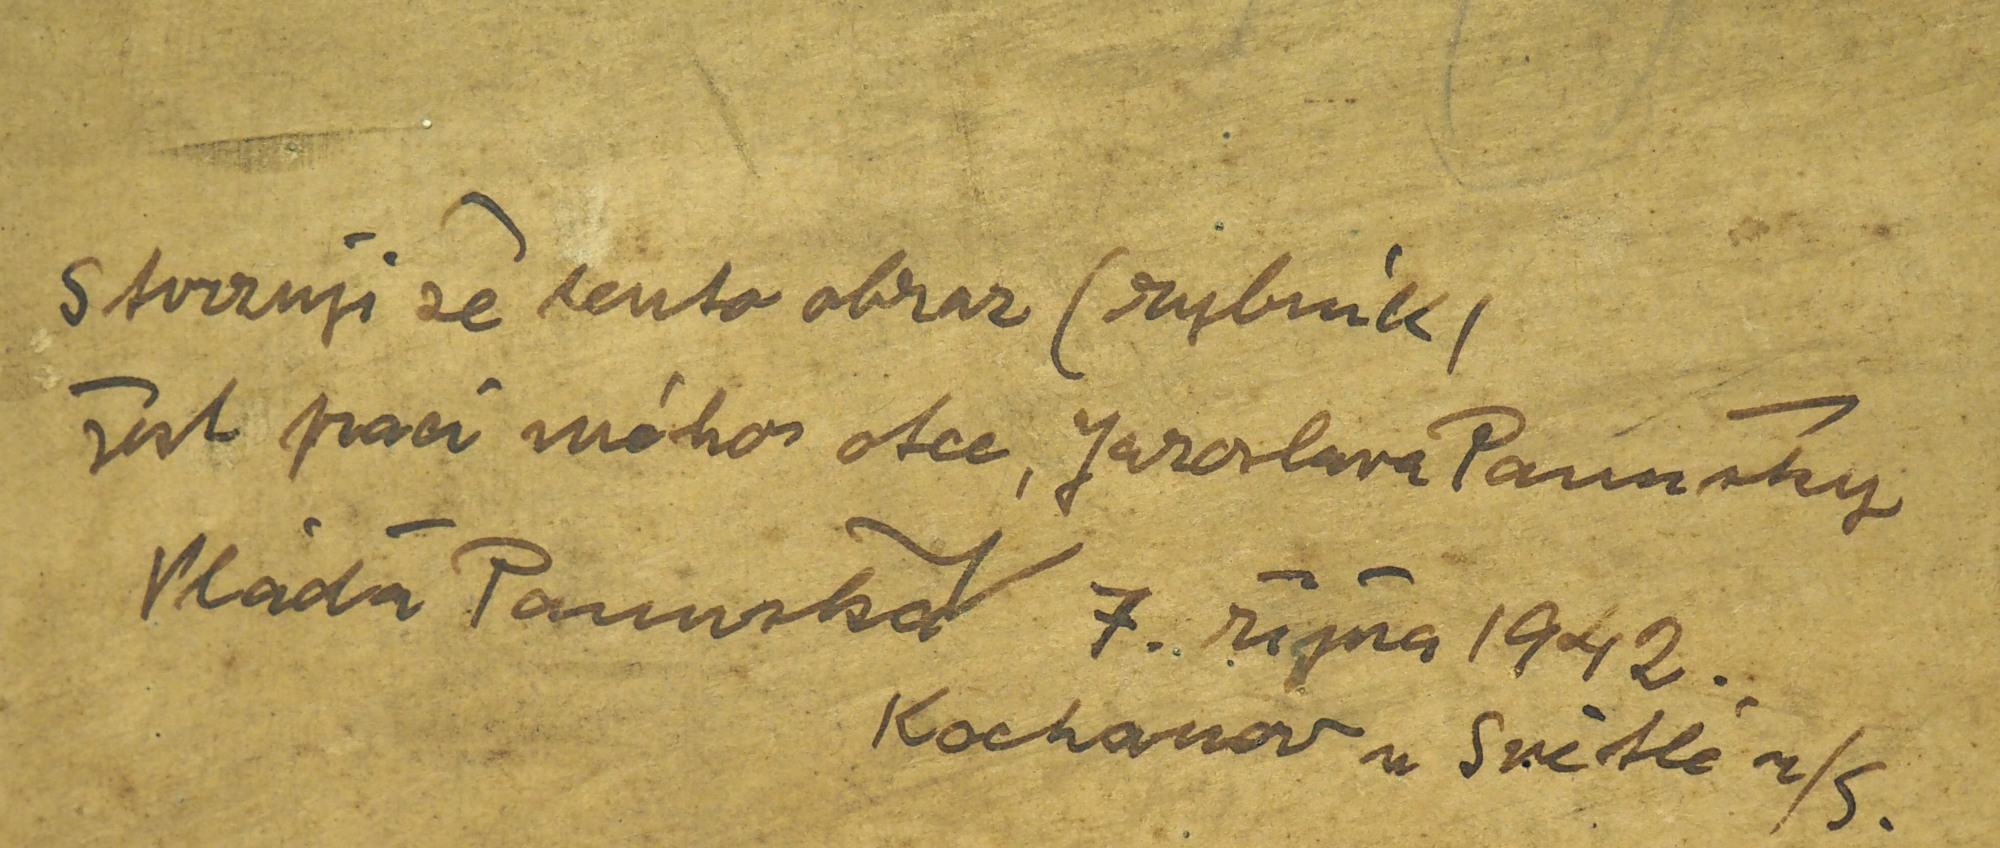 Stvrzuji že tento obraz (rybník)
jest prací mého otce, Jaroslava Panušky
Vláďa Panuška 7. října 1942.
Kochanov u Světlé n/S.